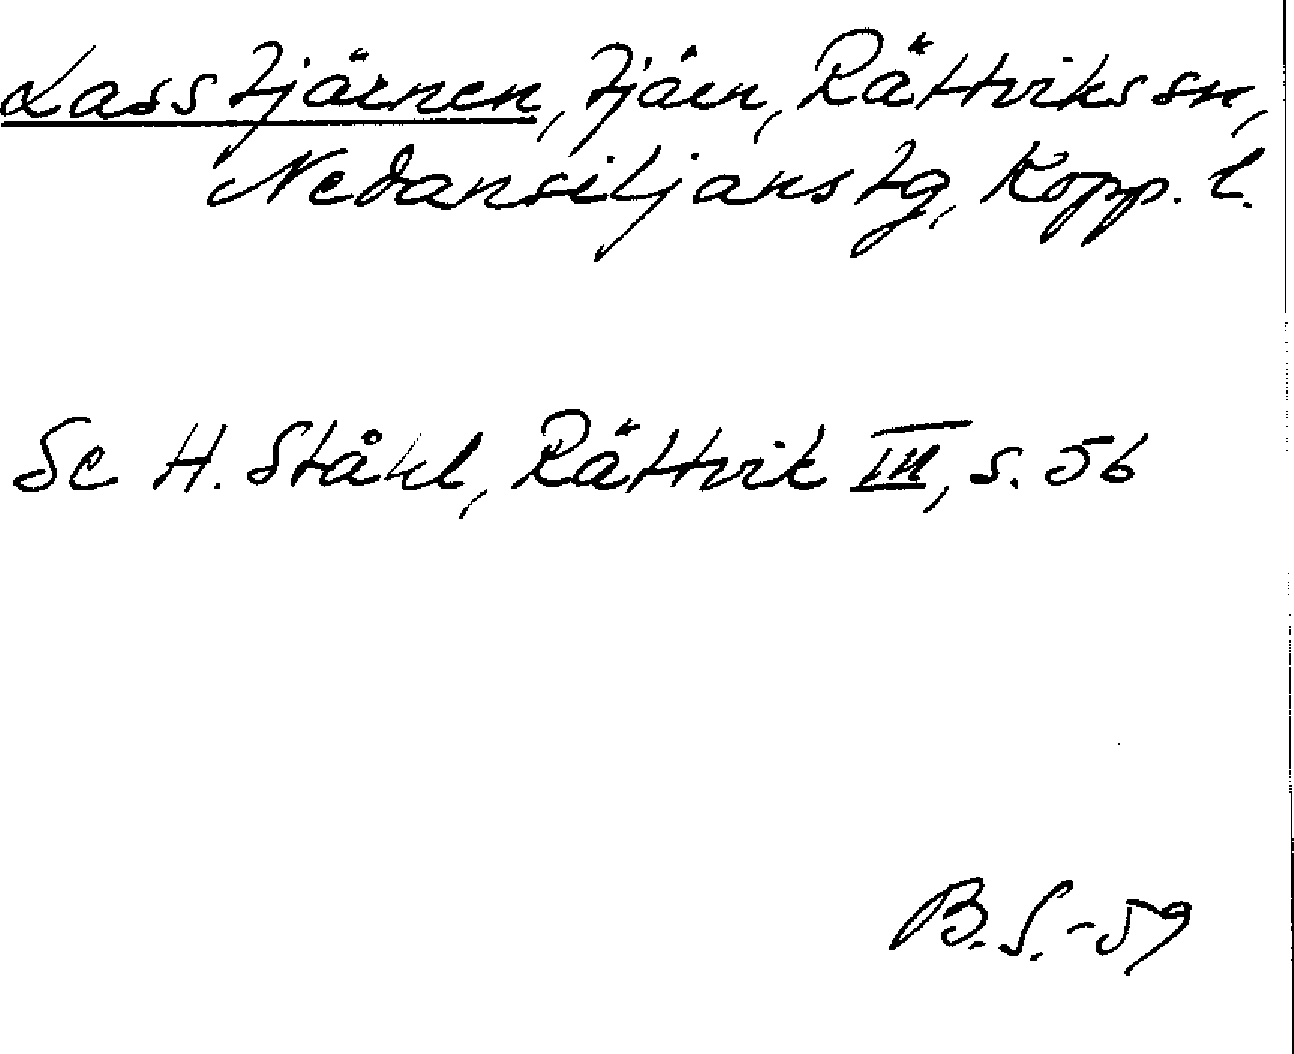 Lasstjärnen, tjärn, Rättviks sn,
Nedansiljans tg, Kopp. l.
Se H. Ståhl, Rättvik III, s. 56
B.S.-59